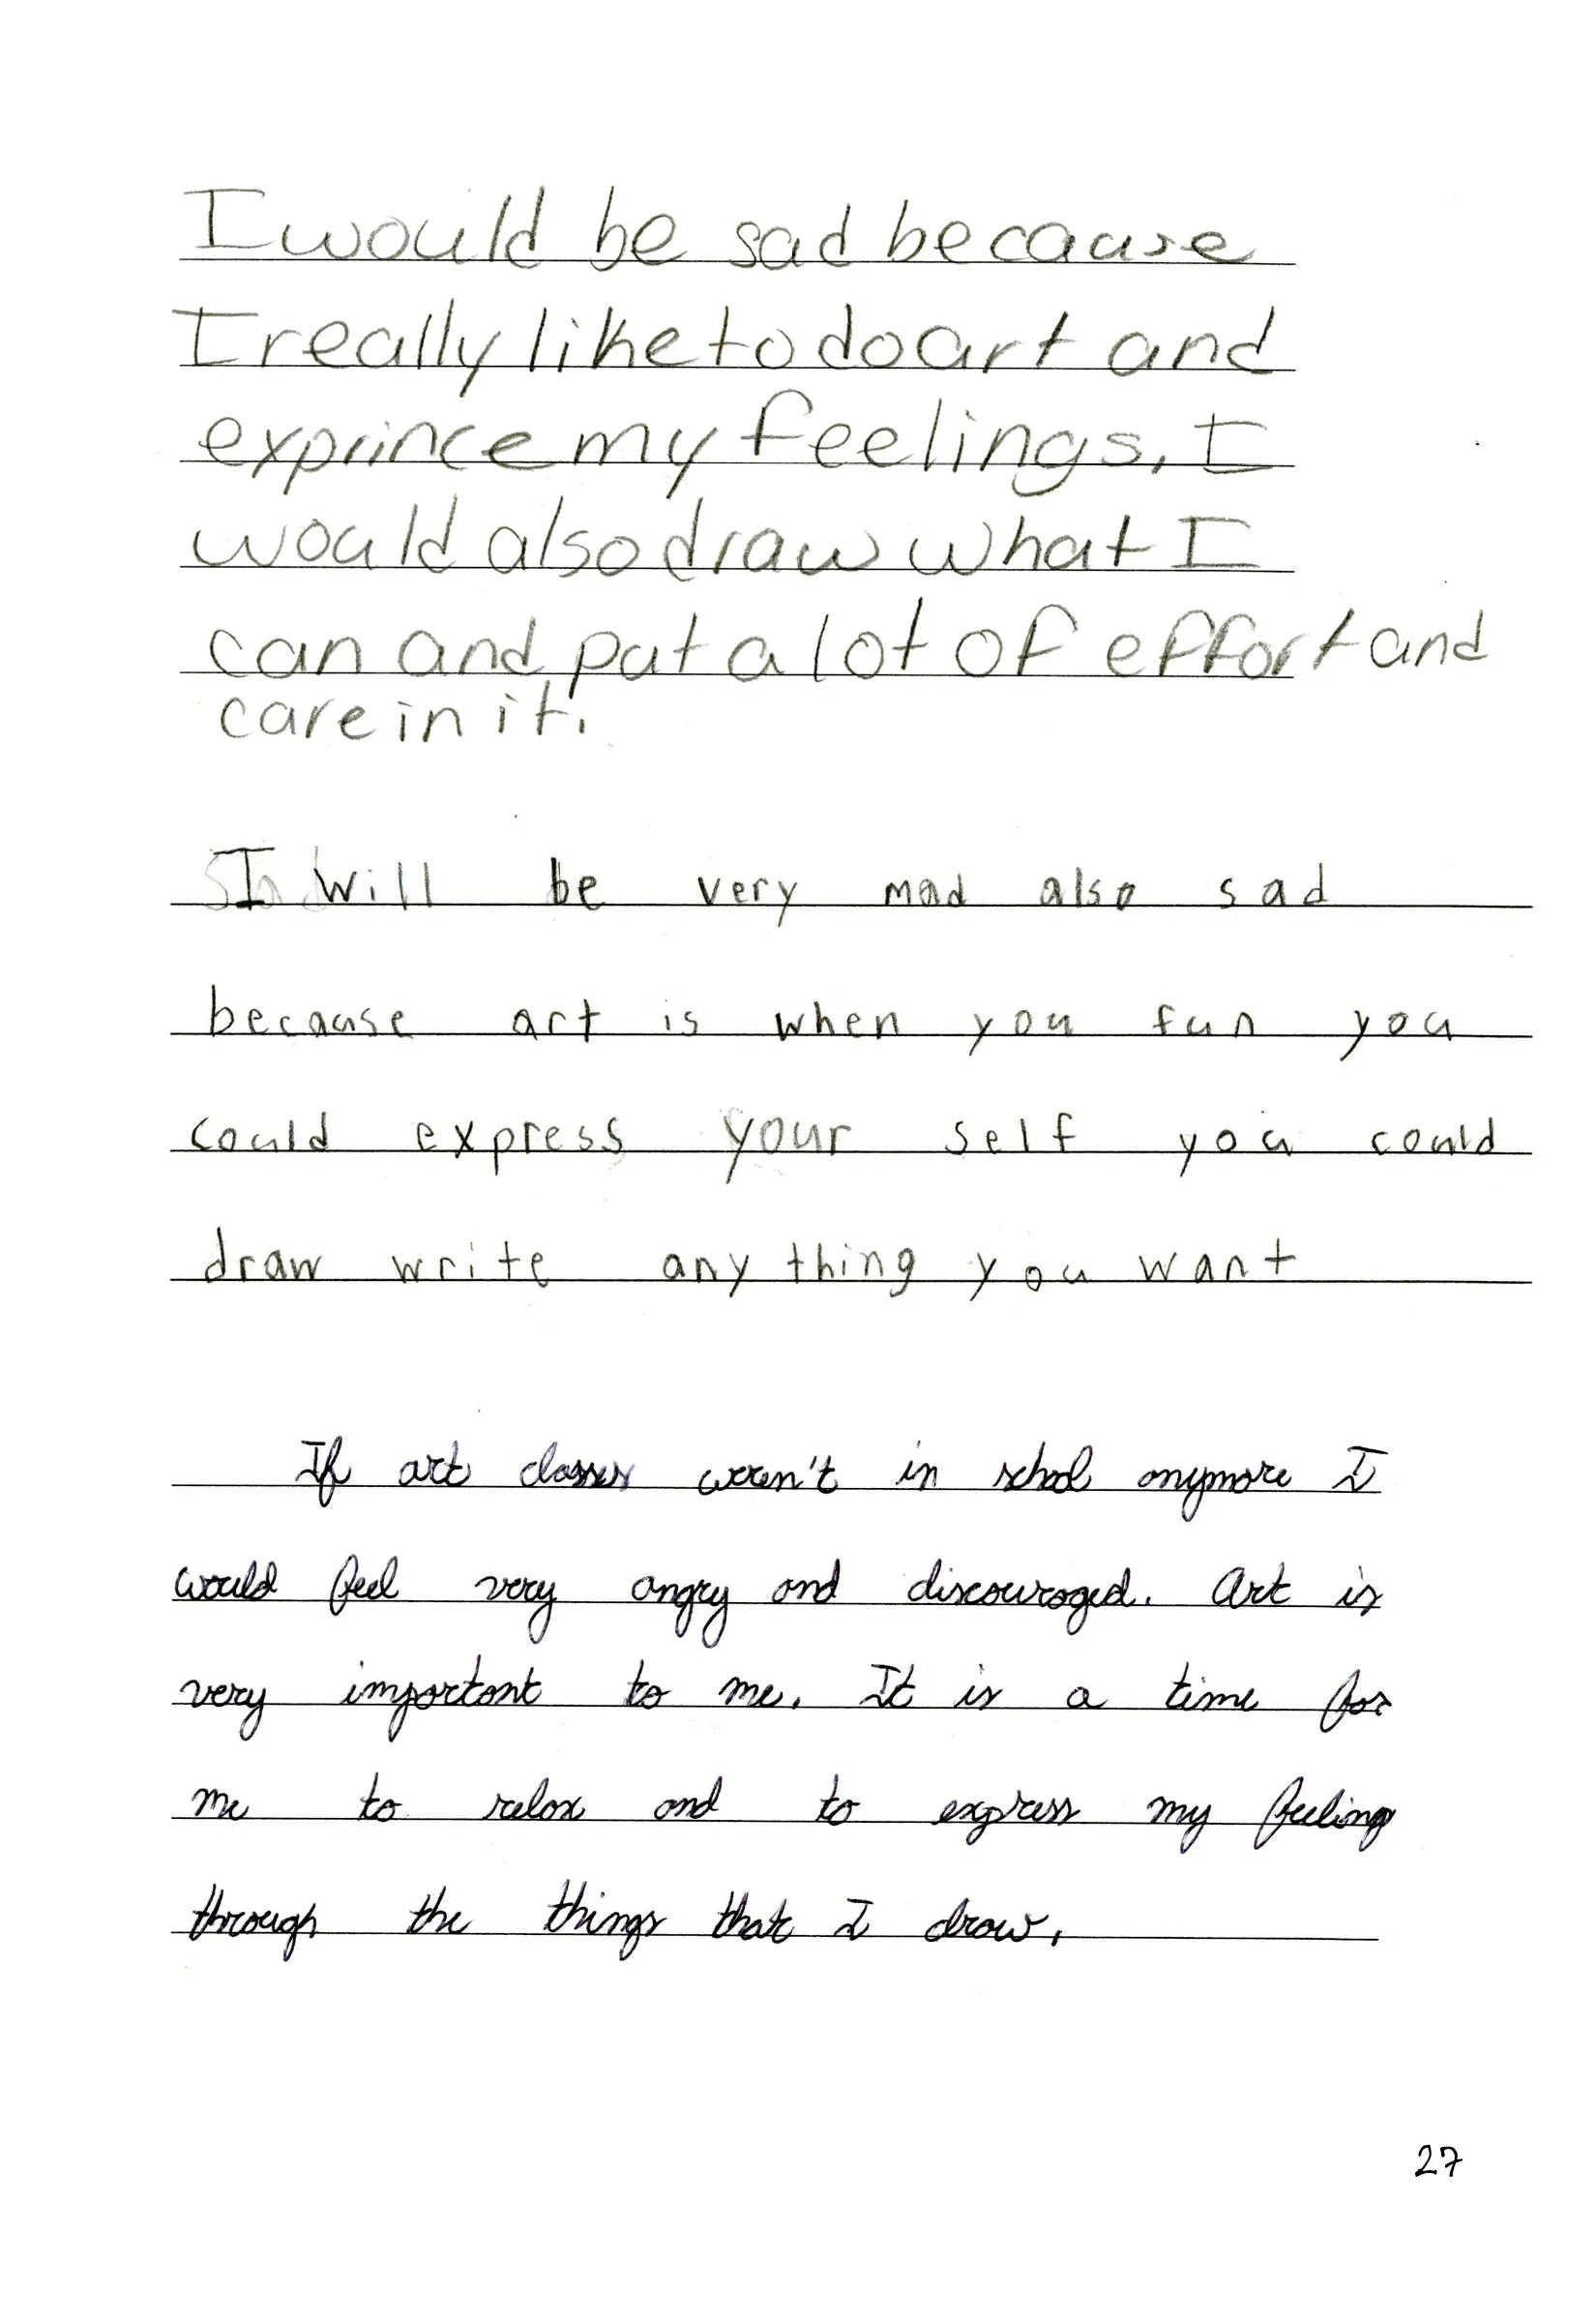 I would be sad because
I really like to do art and
exprince my feelings. I
would also draw what I
can and put a lot of effort and
care in it.
I will be very mad also sad
because art is when you fun you
could express your self you could
draw write any thing you want
If art classes weren't in school anymore I
would feel very angry and discouraged. Art is
very important to me. It is a time for
me to relax and to express my feelings
through the things that I draw.
27